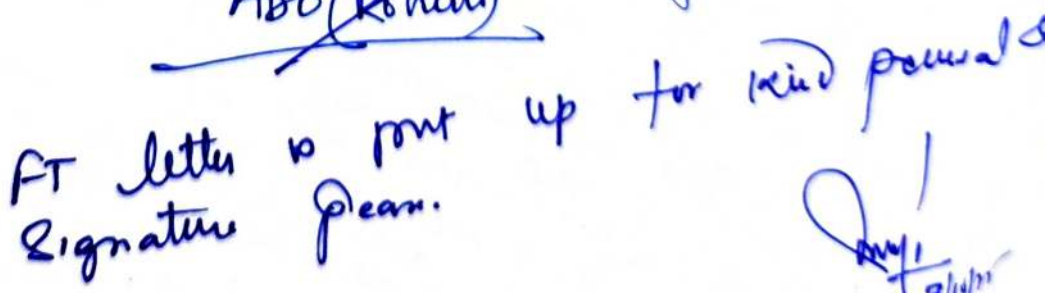 FT letter is put up for kind perusal &
Signature please.